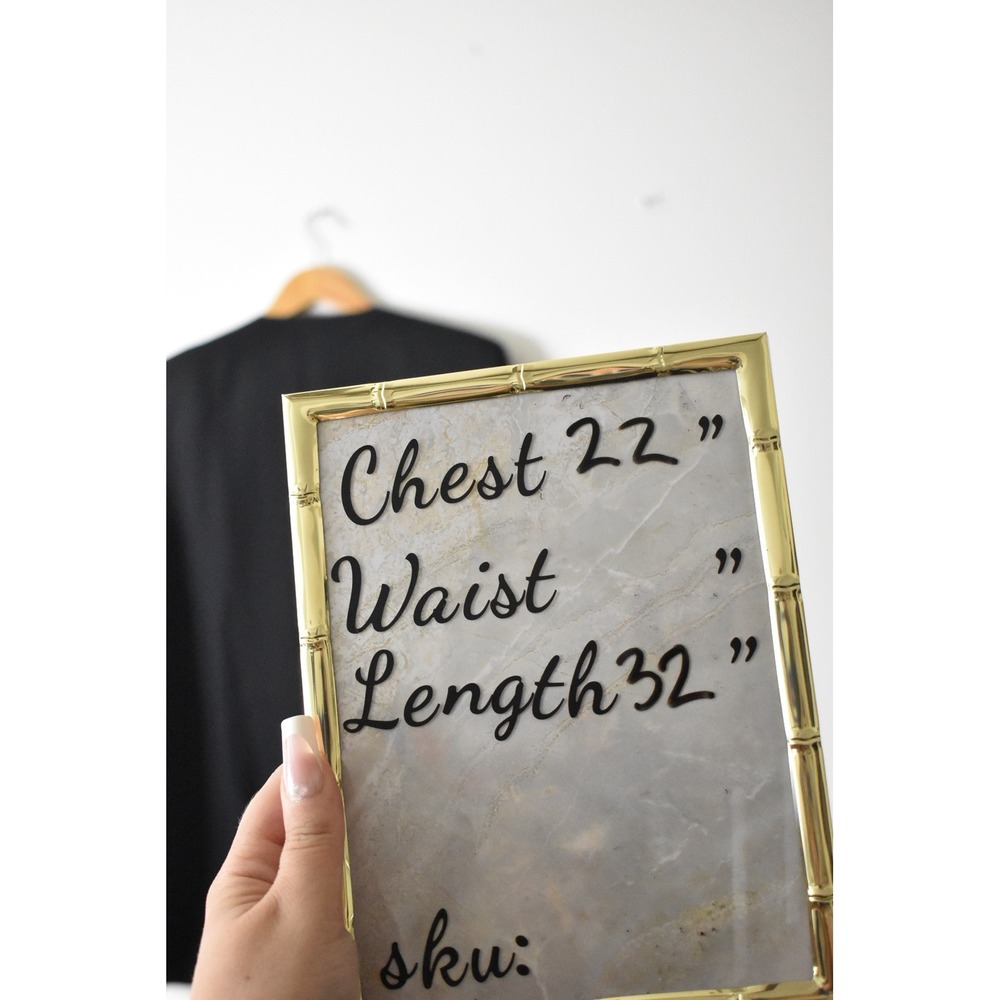 Chest 22 ”
Waist ”
Length 32 ”
sku: